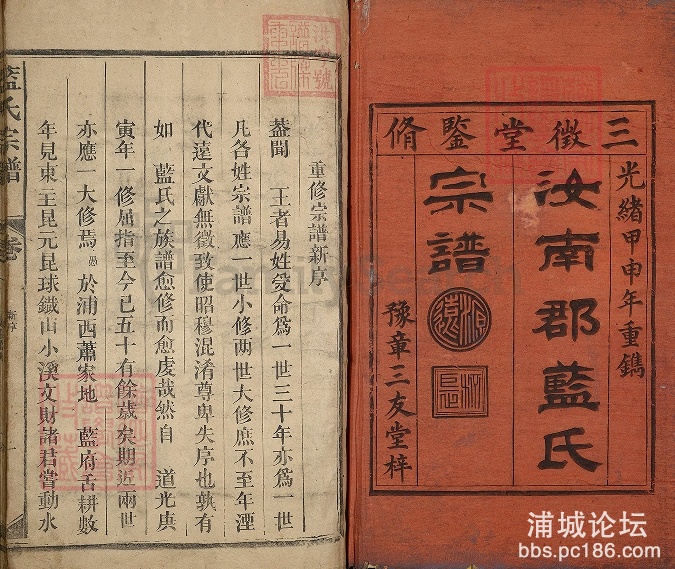 三徵堂鑒脩
光緒甲申年重鐫
汝南郡藍氏
宗譜
豫章三友堂梓
重修宗譜新序
蓋聞 王者易姓受命爲一世三十年亦爲一世
凡各姓宗譜應一世小修兩世大修庶不至年湮
代遠文獻無徵致使昭穆混淆尊卑失序也孰有
如 藍氏之族譜愈修而愈虔哉然自 道光庚
寅年一修屈指至今已五十有餘歲矣期近兩世
亦應一大修焉愚於浦西蕭家地 藍府舌耕數
年見東主昆元昆球鐵山小溪文財諸君嘗動水
藍氏宗譜
新序
一
浦城论坛
bbs.pc186.com